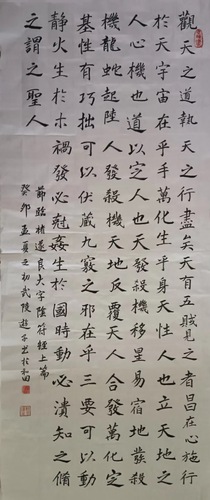 觀天之道執天之行盡矣天有五賊見之者昌在心施行
於天宇宙在乎手萬化生乎身天性人也立天地之
人心機也道以定人也天發殺機移星易宿地發殺
機龍蛇起陸人發殺機天地反覆天人合發萬化定
基性有巧拙可以伏藏九竅之邪在乎三要可以動
靜火生於木禍發必剋姦生於國時動必潰知之脩
之謂之聖人
節臨褚遂良大字陰符經上篇
癸卯孟夏之初武陵游子書於和田